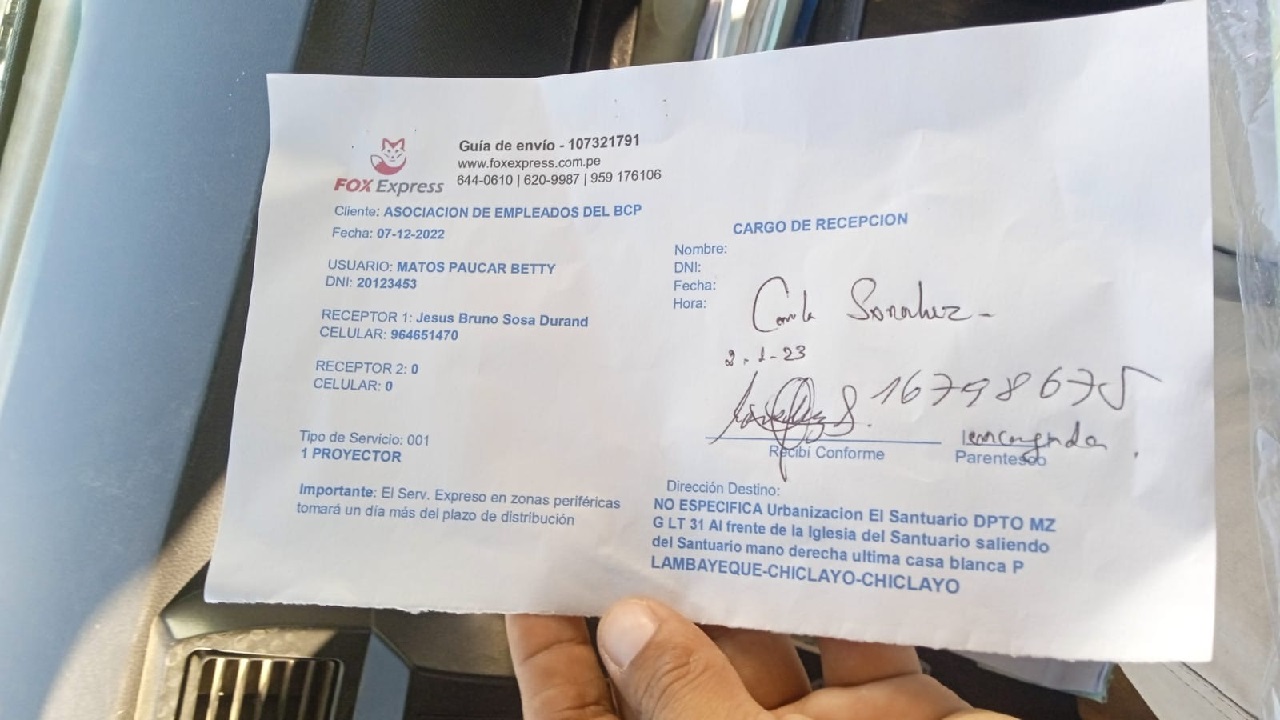 FOX Express
Guía de envío - 107321791
www.foxexpress.com.pe
644-0610 | 620-9987 | 959 176106
Cliente: ASOCIACION DE EMPLEADOS DEL BCP
Fecha: 07-12-2022
USUARIO: MATOS PAUCAR BETTY
DNI: 20123453
RECEPTOR 1: Jesus Bruno Sosa Durand
CELULAR: 964651470
RECEPTOR 2: 0
CELULAR: 0
Tipo de Servicio: 001
1 PROYECTOR
Importante: El Serv. Expreso en zonas periféricas
tomará un día más del plazo de distribución
CARGO DE RECEPCION
Nombre:
DNI:
Fecha:
Hora:
Sanchez -
2-1-23
16798675
Recibi Conforme
Parentesco
Dirección Destino:
NO ESPECIFICA Urbanizacion El Santuario DPTO MZ
G LT 31 Al frente de la Iglesia del Santuario saliendo
del Santuario mano derecha ultima casa blanca P
LAMBAYEQUE-CHICLAYO-CHICLAYO